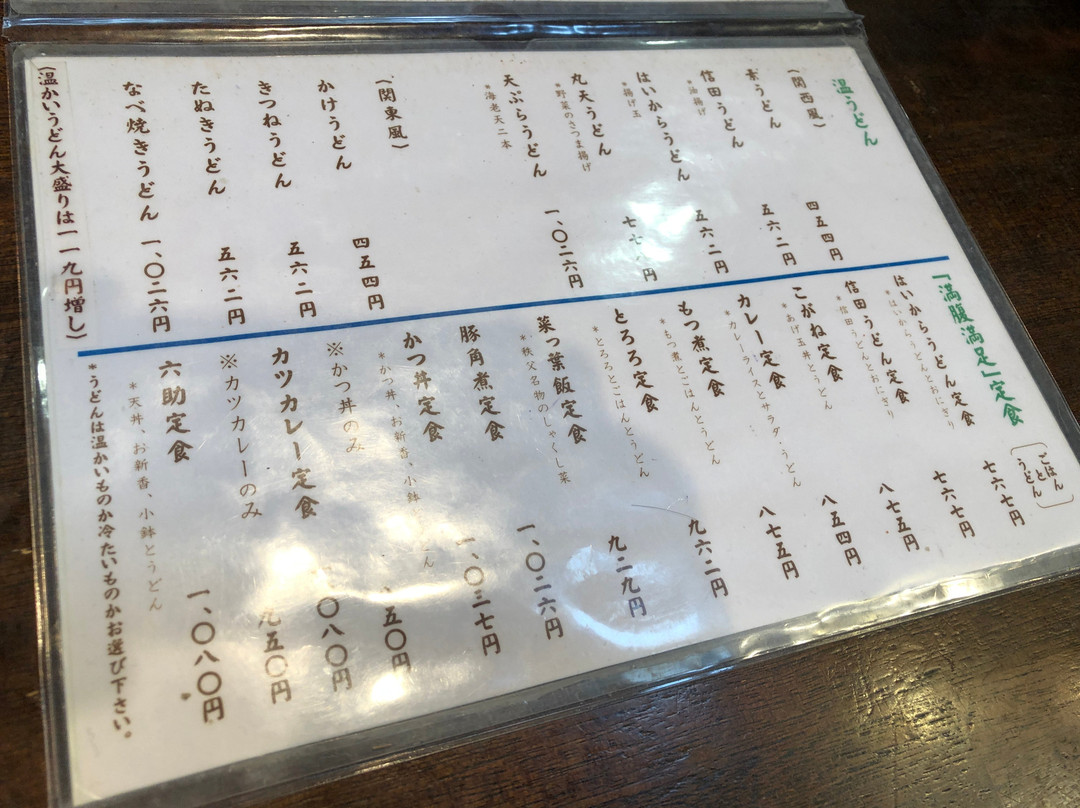 温うどん
(関西風)
素うどん 四五四円
信田うどん 五六二円
*油揚げ
はいからうどん 五六二円
*揚げ玉
丸天うどん 七七 円
*野菜のさつま揚げ
天ぷらうどん 一、〇二六円
*海老天二本
(関東風)
かけうどん 四五四円
きつねうどん 五六二円
たぬきうどん 五六二円
なべ焼きうどん 一、〇二六円
(温かいうどん大盛りは一一九円増し)
『満腹満足』定食
(ごはんとうどん)
はいからうどん定食 七六七円
*はいからうどんとおにぎり
信田うどん定食 七六七円
*信田うどんとおにぎり
こがね定食 八七五円
*あげ玉丼とうどん
カレー定食 八五四円
*カレーライスとサラダ、うどん
もつ煮定食 八七五円
*もつ煮とごはんとうどん
とろろ定食 九六二円
*とろろとごはんとうどん
菜っ葉飯定食 九二九円
*秩父名物のしゃくし菜
豚角煮定食 一、〇二六円
かつ丼定食 一、〇三七円
*かつ丼、お新香、小鉢 ん
※かつ丼のみ 五〇円
カツカレー定食 〇八〇円
※カツカレーのみ 九五〇円
六助定食 一、〇八〇円
*天丼、お新香、小鉢とうどん
*うどんは温かいものか冷たいものかお選び下さい。